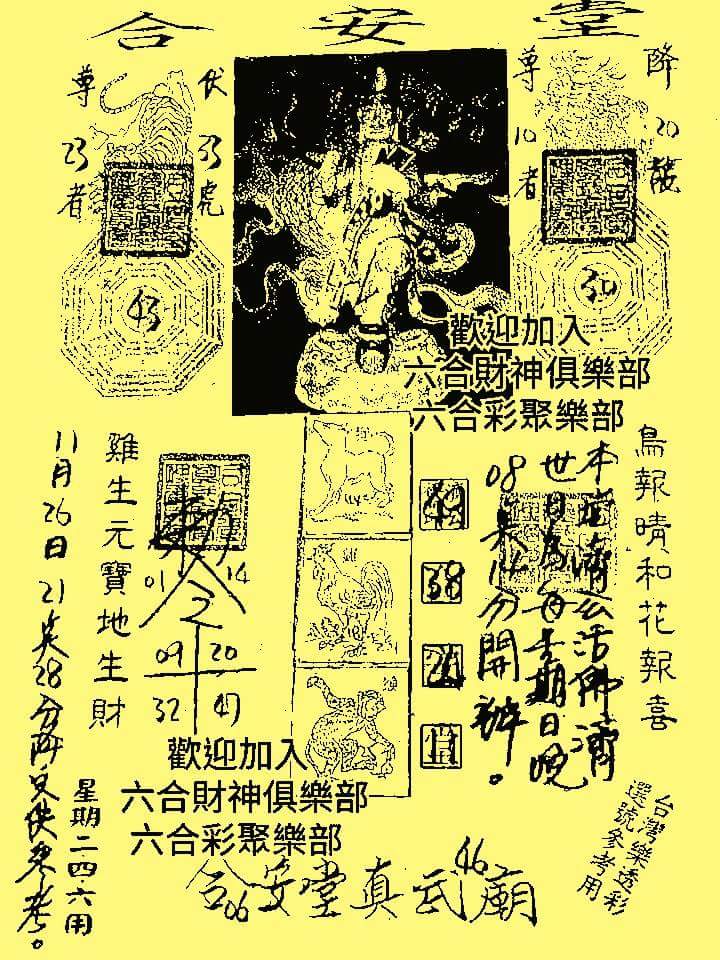 合安堂
降20龍
尊10者
伏35虎
尊23者
43
30
歡迎加入
六合財神俱樂部
六合彩聚樂部
鳥報晴和花報喜
本堂濟公活佛濟
世日為每星期日晚
08點14分開辦。
狗
雞
49
38
24
11
01
14
09 20
32 47
雞生元寶地生財
11月26日21点28分
星期二.四.六用
歡迎加入
六合財神俱樂部
六合彩聚樂部
台灣樂透彩
選號參考用
合安堂真武廟
06
46